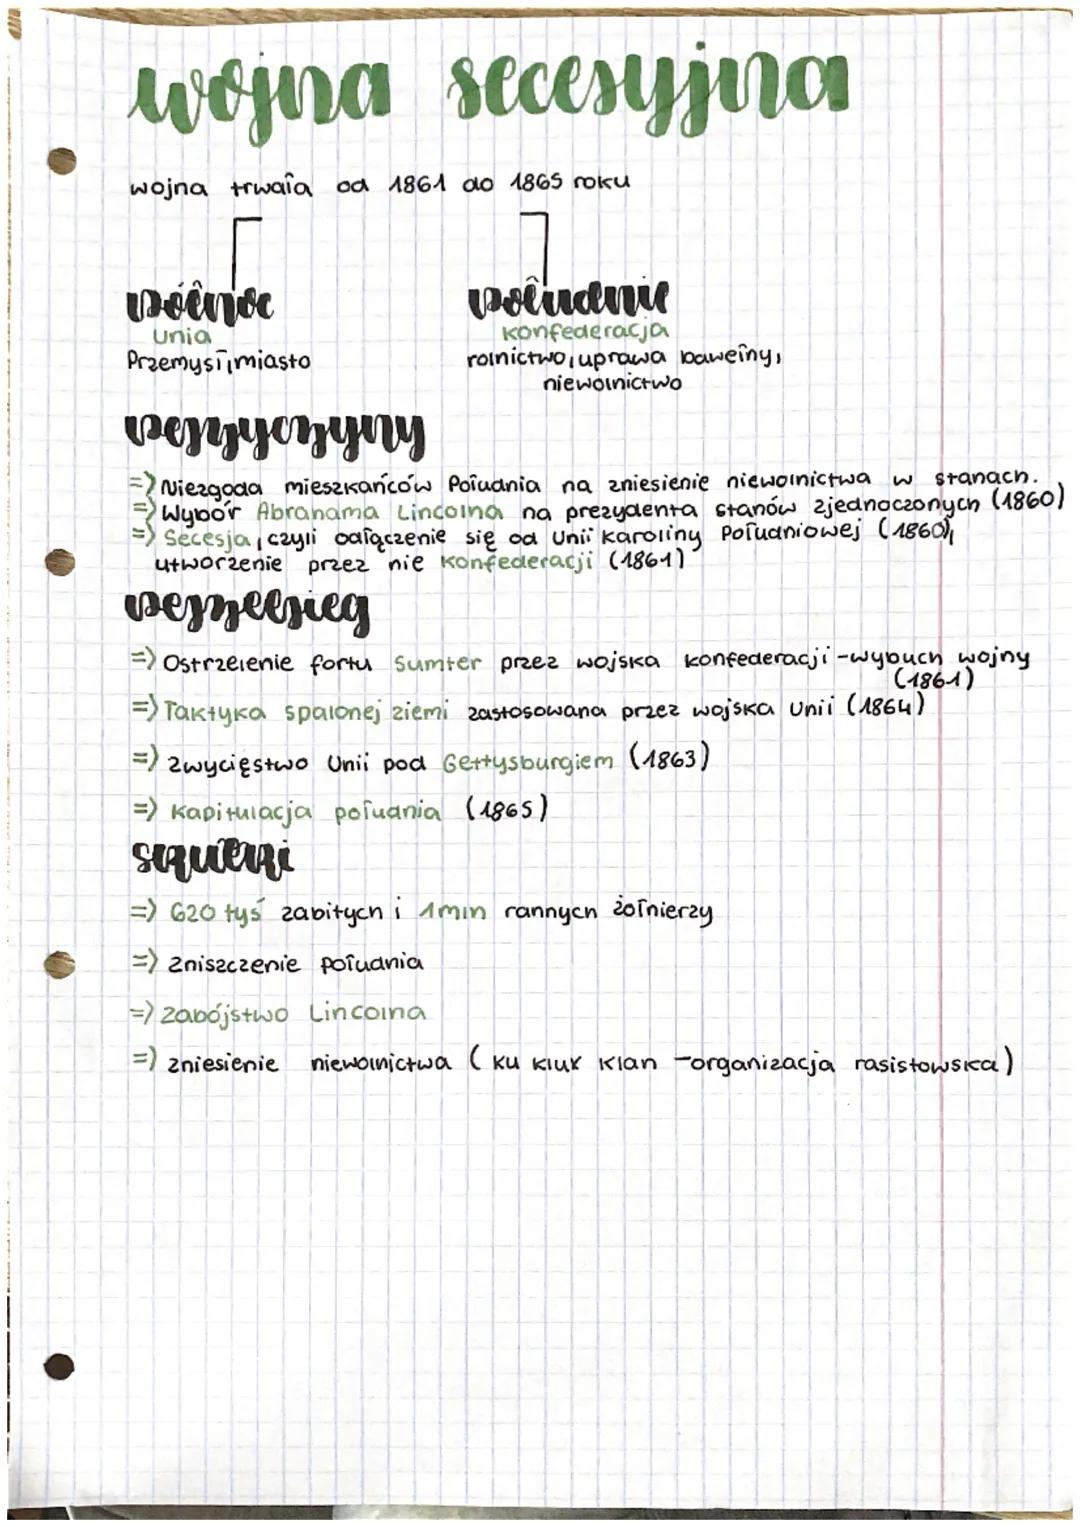 wojna secesyjna
wojna trwała od 1861 do 1865 roku
północ południe
Unia konfederacja
Przemysł, miasto rolnictwo, uprawa bawełny,
niewolnictwo
przyczyny
=> Niezgoda mieszkańców Południa na zniesienie niewolnictwa w stanach.
=> Wybór Abrahama Lincolna na prezydenta stanów zjednoczonych (1860)
=> Secesja, czyli odłączenie się od Unii Karoliny Południowej (1860),
utworzenie przez nie konfederacji (1861)
przebieg
=> Ostrzelenie fortu Sumter przez wojska konfederacji - wybuch wojny
(1861)
=> Taktyka spalonej ziemi zastosowana przez wojska Unii (1864)
=> zwycięstwo Unii pod Gettysburgiem (1863)
=> Kapitulacja południa (1865)
skutki
=> 620 tyś zabitych i 1mln rannych żołnierzy
=> zniszczenie południa
=> zabójstwo Lincolna
=> zniesienie niewolnictwa (ku klux klan - organizacja rasistowska)